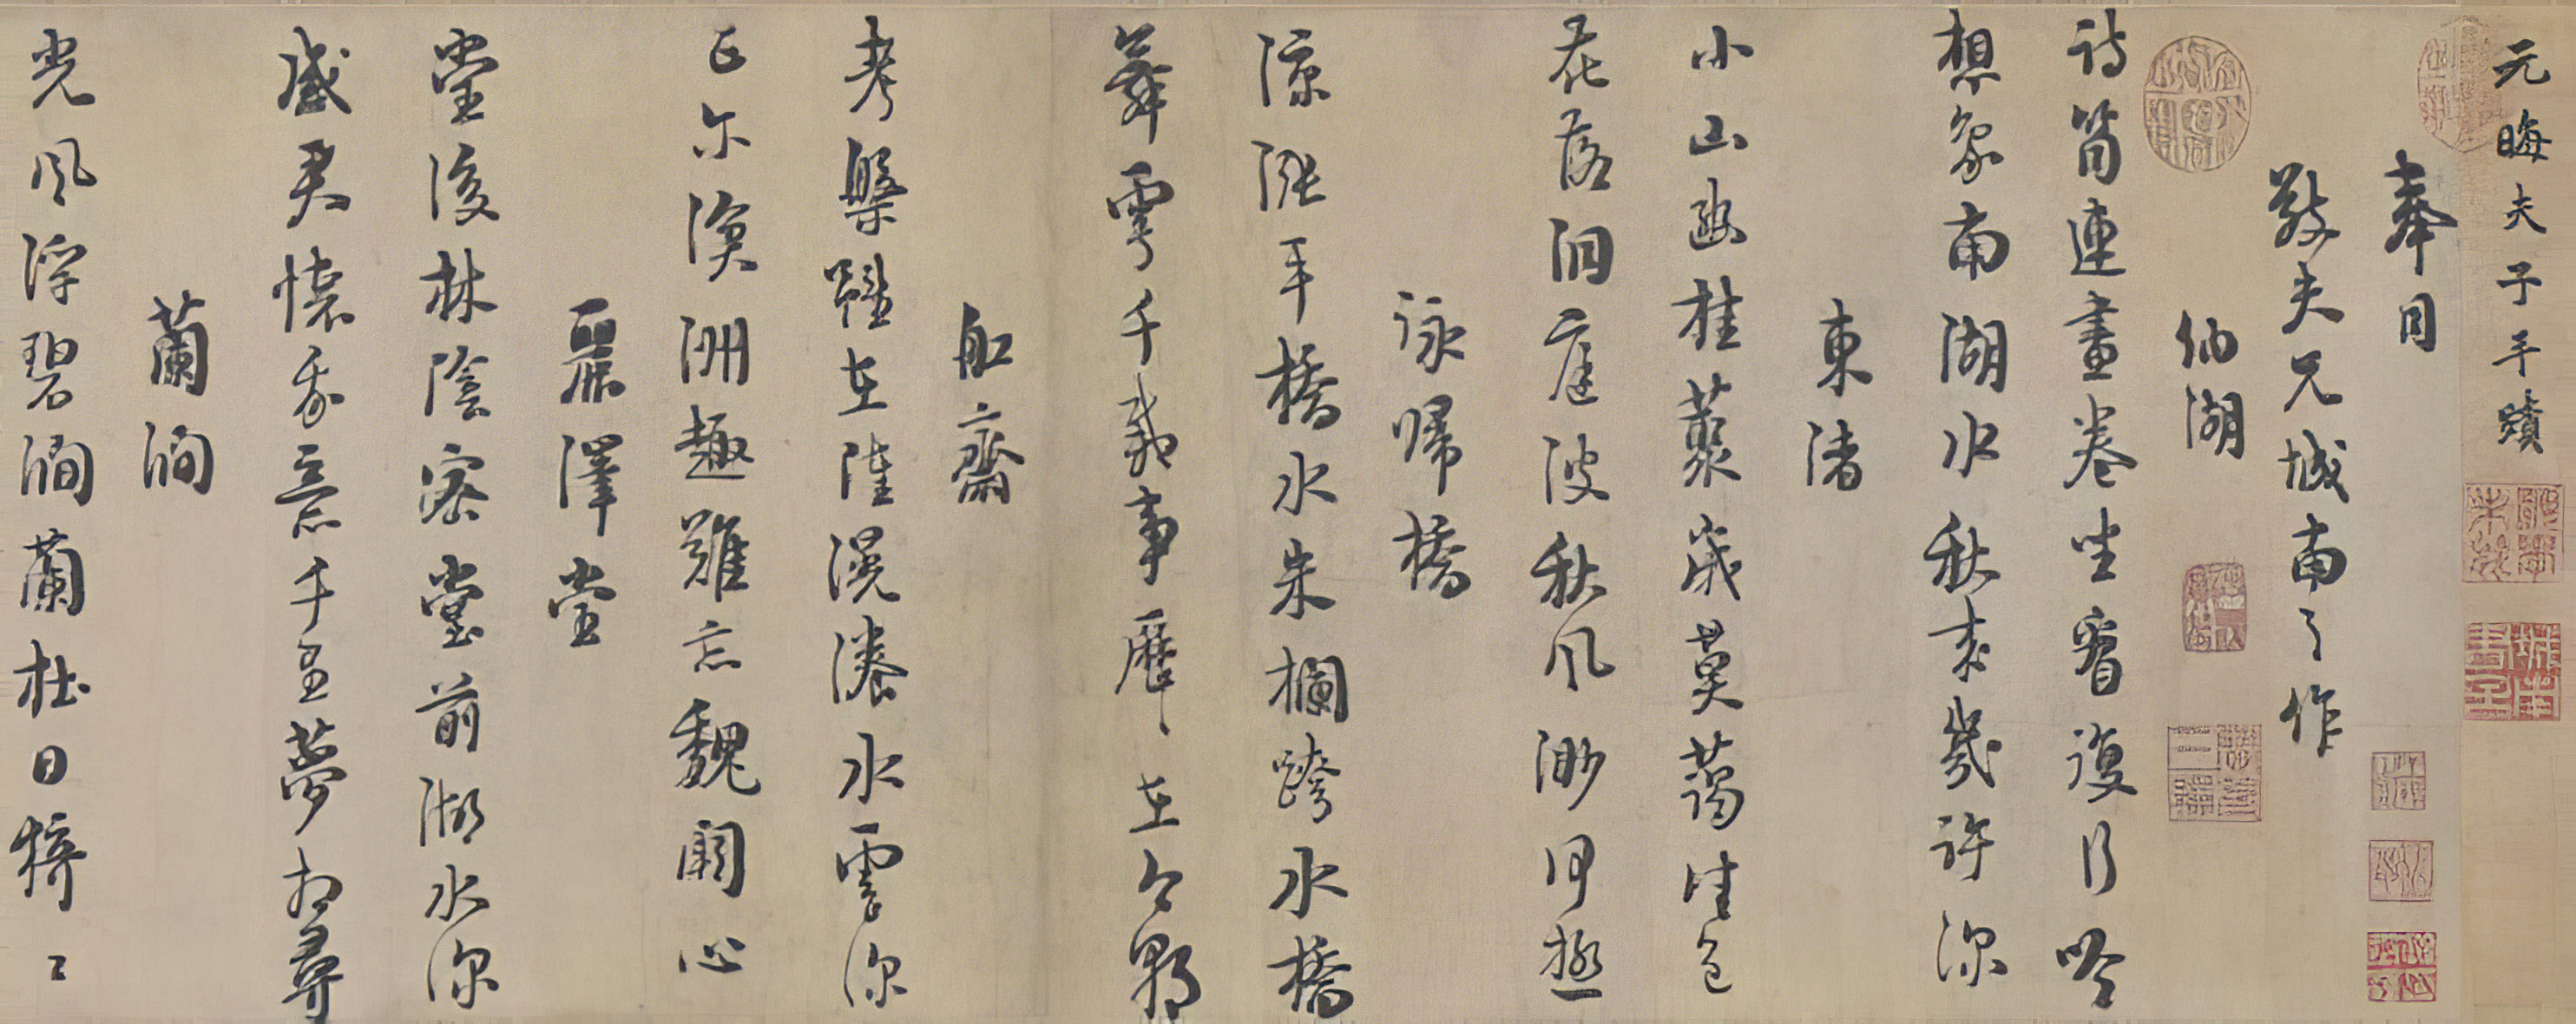 元晦夫子手蹟
奉同
敬夫兄城南之作
納湖
詩筒連畫卷坐看復行吟
想象南湖水秋來幾許深
東渚
小山幽桂叢歲莫藹佳色
花落洞庭波秋風渺何極
詠歸橋
漲平橋水朱欄跨水橋
舞雩千載事歷歷在今朝
船齋
考槃雖在陸滉瀁水雲深
正爾滄洲趣難忘魏闕心
麗澤堂
堂後林陰密堂前湖水深
感君懷我意千里夢相尋
蘭澗
光風浮碧澗蘭杜日猗猗